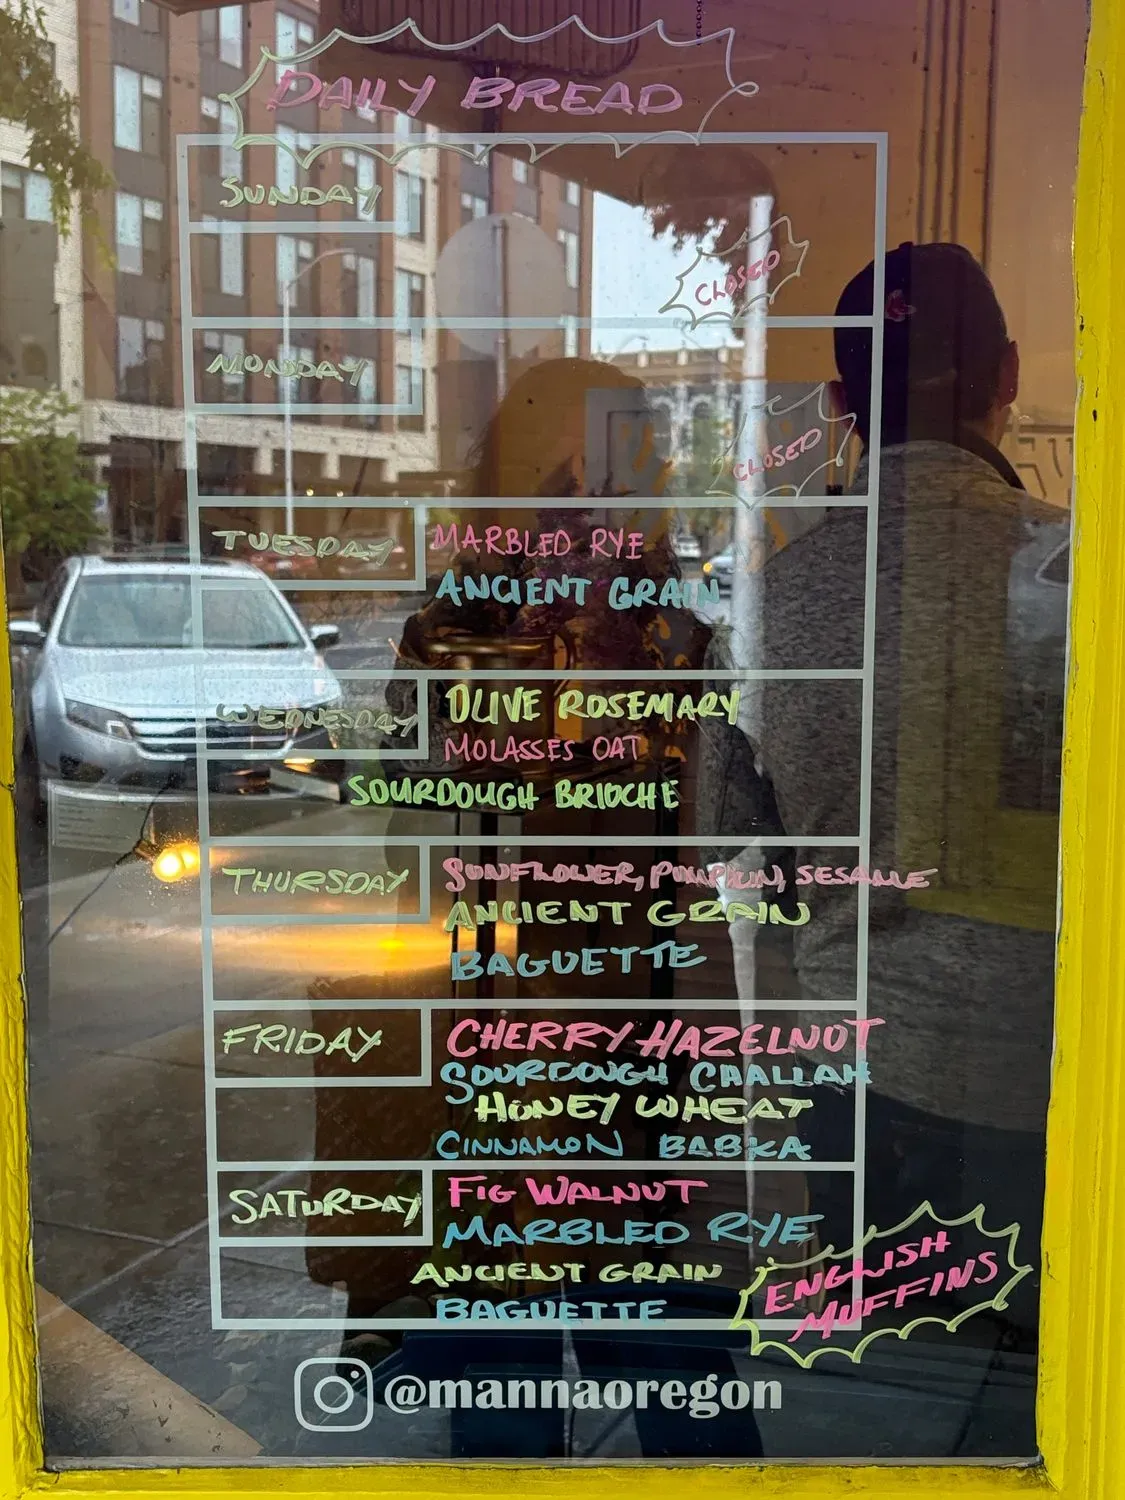 DAILY BREAD
SUNDAY
CLOSED
MONDAY
CLOSED
TUESDAY
MARBLED RYE
ANCIENT GRAIN
WEDNESDAY
OLIVE ROSEMARY
MOLASSES OAT
SOURDOUGH BRIOCHE
THURSDAY
SUNFLOWER, PUMPKIN, SESAME
ANCIENT GRAIN
BAGUETTE
FRIDAY
CHERRY HAZELNUT
SOURDOUGH CHALLAH
HONEY WHEAT
CINNAMON BABKA
SATURDAY
FIG WALNUT
MARBLED RYE
ANCIENT GRAIN
BAGUETTE
ENGLISH
MUFFINS
@mannaoregon